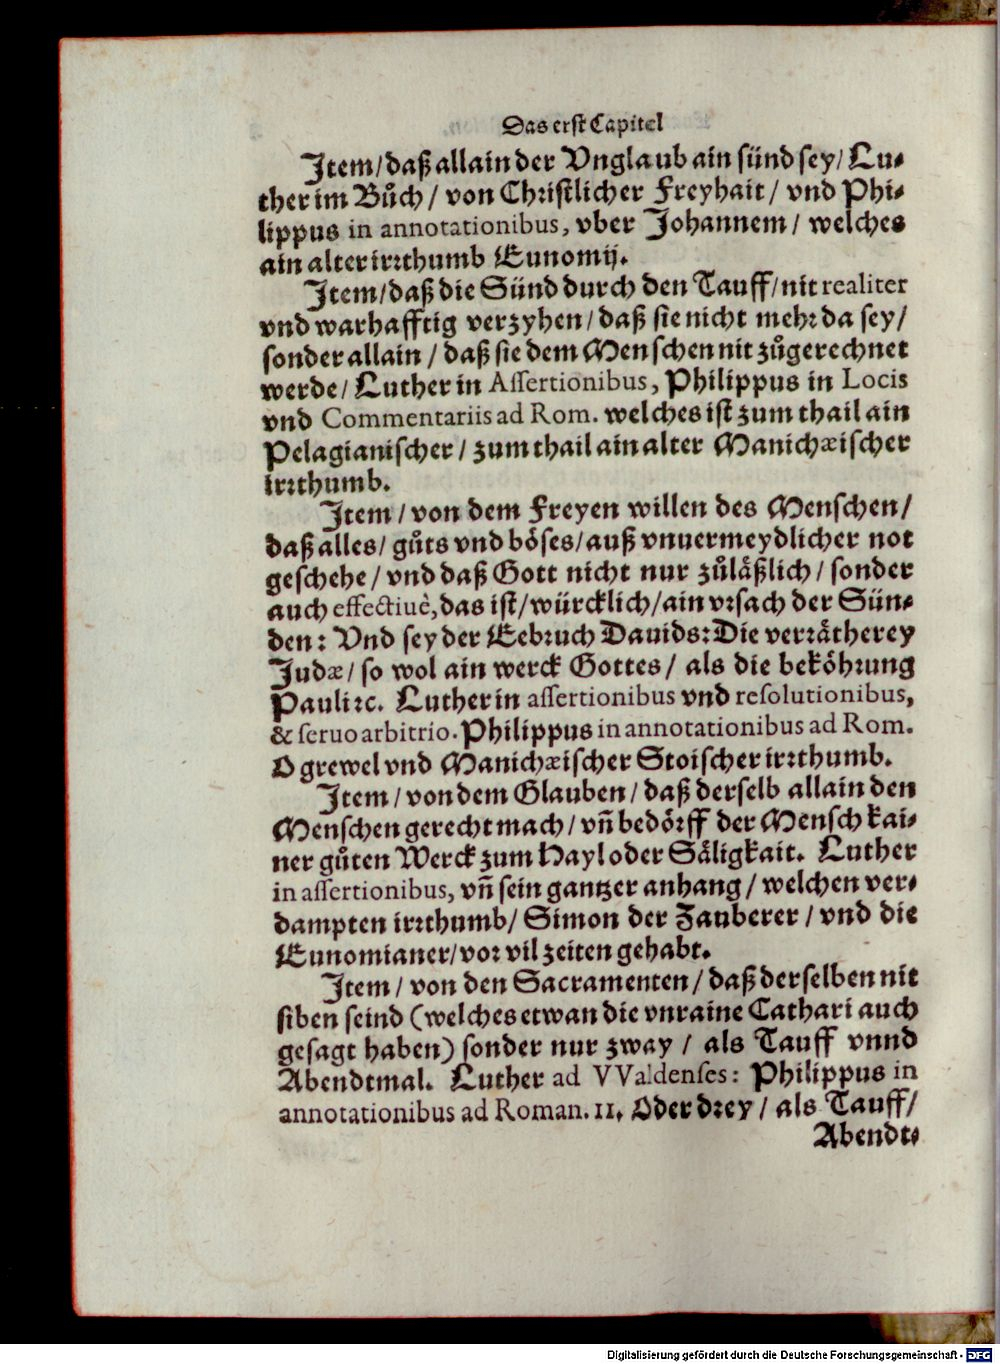 Das erst Capitel
Item/daß allain der Vnglaub ain sünd sey/ Lu-
ther im Bůch/ von Christlicher Freyhait/ vnd Phi-
lippus in annotationibus, vber Johannem/ welches
ain alter irrthumb Eunomij.
Item/daß die Sünd durch den Tauff/nit realiter
vnd warhafftig verzyhen/daß sie nicht mehr da sey/
sonder allain/daß sie dem Menschen nit zůgerechnet
werde/ Luther in Assertionibus, Philippus in Locis
vnd Commentariis ad Rom. welches ist zum thail ain
Pelagianischer/ zum thail ain alter Manichæischer
irrthumb.
Item/ von dem Freyen willen des Menschen/
daß alles/ gůts vnd böses/auß vnuermeydlicher not
geschehe/ vnd daß Gott nicht nur zůläßlich/ sonder
auch effectiuè, das ist/würcklich/ain vrsach der Sün-
den: Vnd sey der Eebruch Dauids: Die verrätherey
Judæ/ so wol ain werck Gottes/ als die beköhrung
Pauli ꝛc. Luther in assertionibus vnd resolutionibus,
& seruo arbitrio. Philippus in annotationibus ad Rom.
O grewel vnd Manichæischer Stoischer irrthumb.
Item/ von dem Glauben/ daß derselb allain den
Menschen gerecht mach/ vñ bedörff der Mensch kai-
ner gůten Werck zum Hayl oder Säligkait. Luther
in assertionibus, vñ sein gantzer anhang/ welchen ver-
dampten irrthumb/ Simon der Zauberer/ vnd die
Eunomianer/vor vil zeiten gehabt.
Item/ von den Sacramenten/ daß derselben nit
siben seind (welches etwan die vnraine Cathari auch
gesagt haben) sonder nur zway/ als Tauff vnnd
Abendtmal. Luther ad VValdenses: Philippus in
annotationibus ad Roman. 11. Oder drey/ als Tauff/
Abendt-
Digitalisierung gefördert durch die Deutsche Forschungsgemeinschaft - DFG